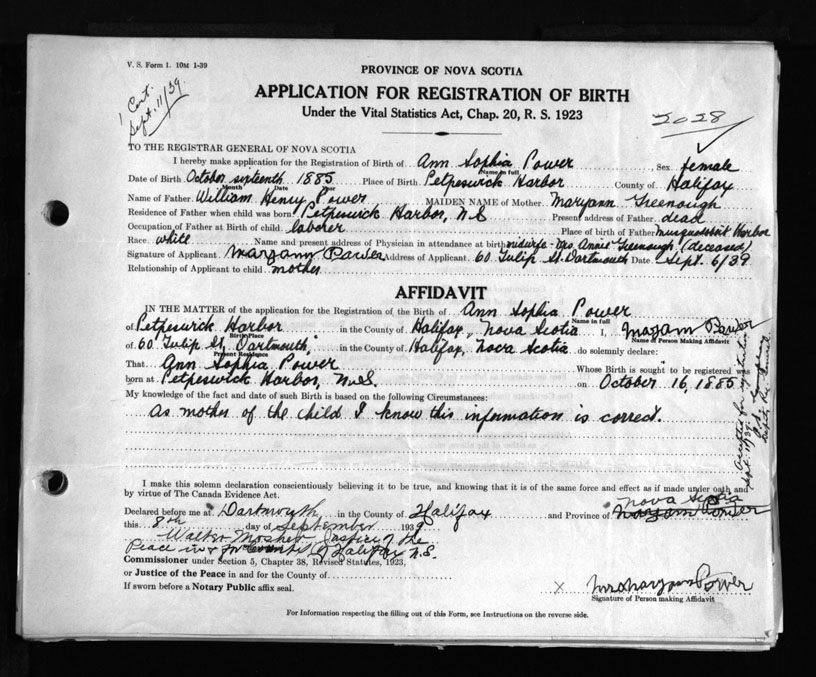 V. S. Form 1. 10M 1-39
1 Cert.
Sept. 11/39.
PROVINCE OF NOVA SCOTIA
APPLICATION FOR REGISTRATION OF BIRTH
Under the Vital Statistics Act, Chap. 20, R. S. 1923
2028
TO THE REGISTRAR GENERAL OF NOVA SCOTIA
I hereby make application for the Registration of Birth of Ann Sophia Power, Sex female
Name in full
Date of Birth October sixteenth 1885 Place of Birth Petpeswick Harbor County of Halifax
Month Date Year
Name of Father William Henry Power MAIDEN NAME of Mother Maryann Greenough
Residence of Father when child was born Petpeswick Harbor, N.S Present address of Father dead
Occupation of Father at Birth of child laborer Place of birth of Father Musquodoboit Harbor
Race white Name and present address of Physician in attendance at birth midwife - Mrs Annie Greenough (deceased)
Signature of Applicant Maryann Power Address of Applicant 60 Tulip St. Dartmouth Date Sept. 6/39
Relationship of Applicant to child mother
AFFIDAVIT
IN THE MATTER of the application for the Registration of the Birth of Ann Sophia Power
Name in full
of Petpeswick Harbor in the County of Halifax, Nova Scotia I, Maryann Power
Birth Place Name of Person Making Affidavit
of 60 Tulip St, Dartmouth, in the County of Halifax, Nova Scotia do solemnly declare:
Present Residence
That Ann Sophia Power Whose Birth is sought to be registered was
born at Petpeswick Harbor, N.S. on October 16, 1885
My knowledge of the fact and date of such Birth is based on the following Circumstances:
As mother of the child I know this information is correct.
Accepted for registration
Sept. 11/39
Deputy Reg. General
I make this solemn declaration conscientiously believing it to be true, and knowing that it is of the same force and effect as if made under oath and
by virtue of The Canada Evidence Act.
Nova Scotia
Declared before me at Dartmouth in the County of Halifax and Province of Maryann Power
this 8th day of September 1939
Walter Mosher Justice of the
Peace in & for County of Halifax N.S.
Commissioner under Section 5, Chapter 38, Revised Statutes, 1923,
or Justice of the Peace in and for the County of
If sworn before a Notary Public affix seal.
X Mrs Maryann Power
Signature of Person making Affidavit
For Information respecting the filling out of this Form, see Instructions on the reverse side.